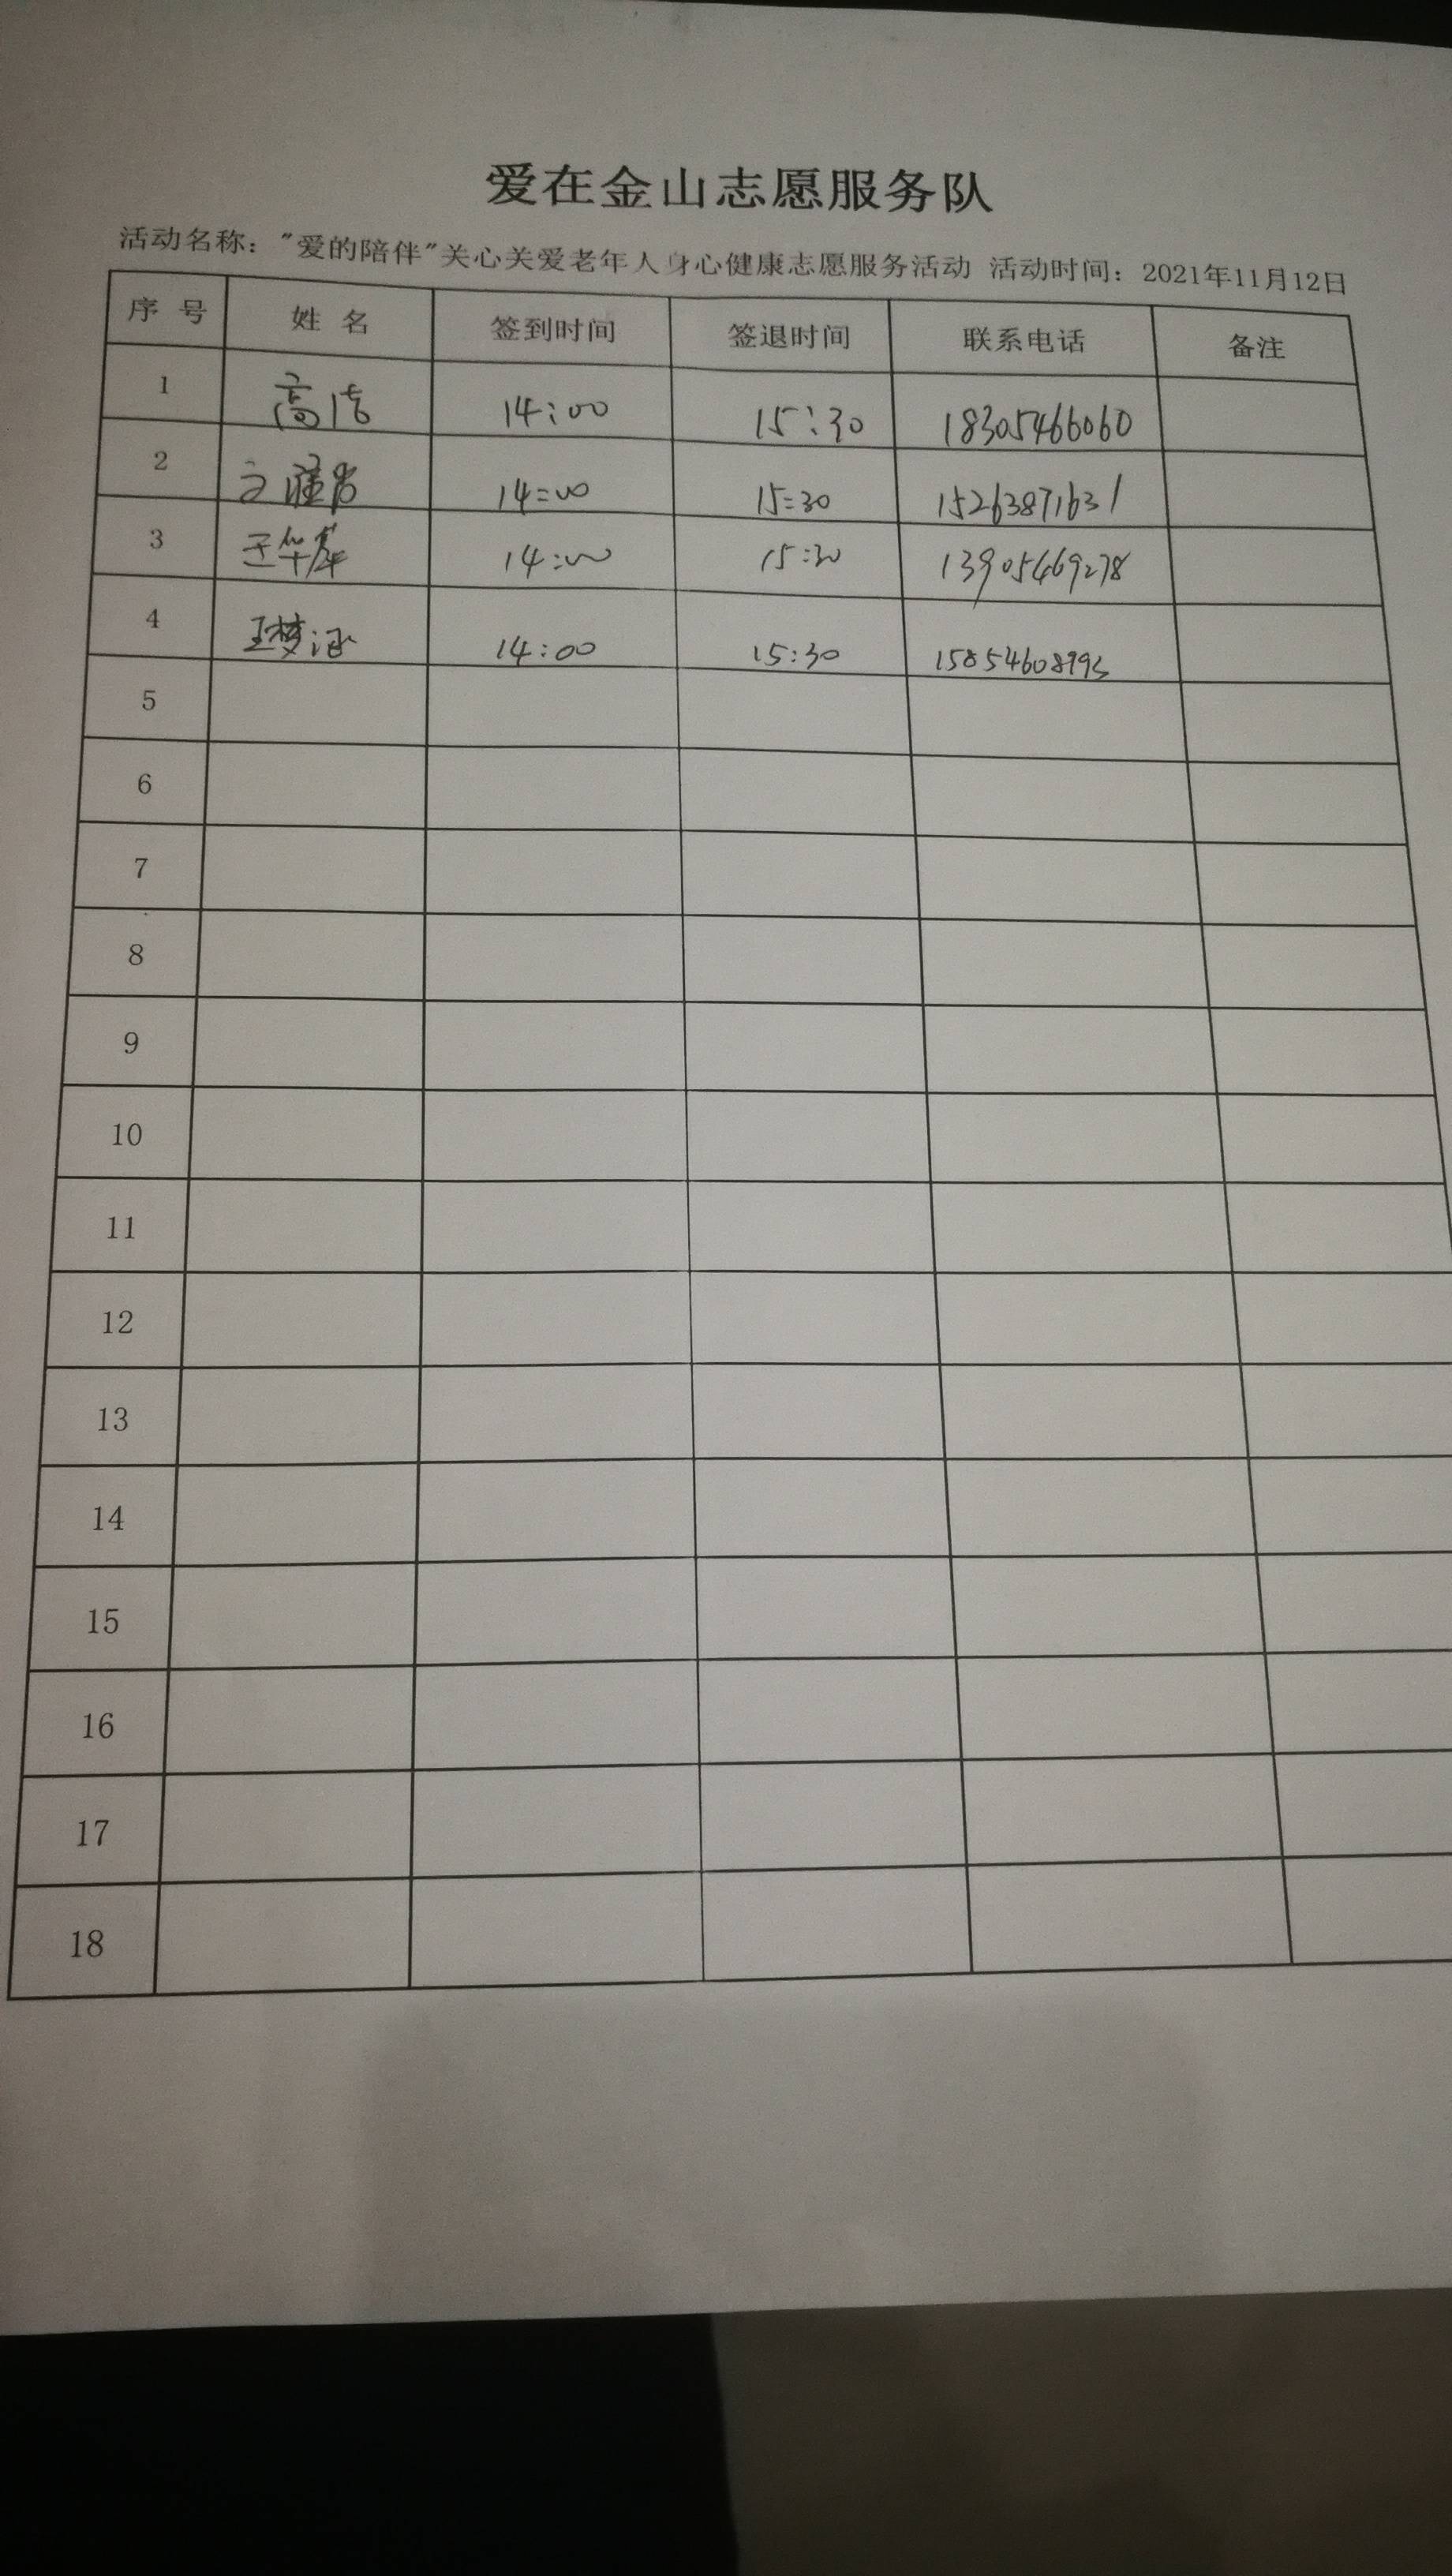 爱在金山志愿服务队
活动名称："爱的陪伴"关心关爱老年人身心健康志愿服务活动 活动时间：2021年11月12日
序 号 姓 名 签到时间 签退时间 联系电话 备注
1 高洁 14:00 15:30 18305466060
2 14:00 15:30 15263871631
3 王华 14:00 15:30 13905469278
4 王梦涵 14:00 15:30 15854608993
5
6
7
8
9
10
11
12
13
14
15
16
17
18